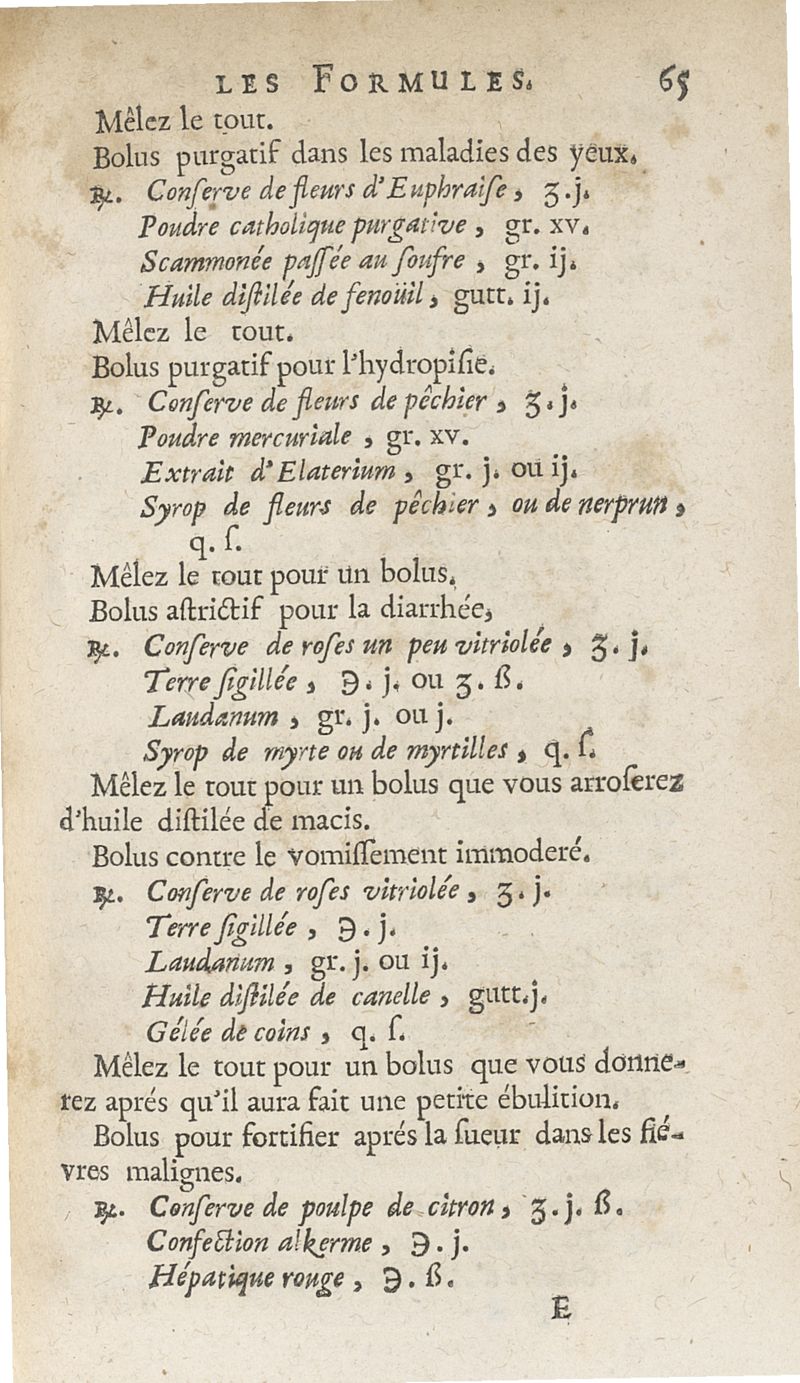 LES FORMULES. 65
Mêlez le tout.
Bolus purgatif dans les maladies des yeux.
℞. Conſerve de fleurs d'Euphraiſe, ʒ.j.
Poudre catholique purgative, gr. xv.
Scammonée paſſée au ſoufre, gr. ij.
Huile diſtilée de fenoüil, gutt. ij.
Mêlez le tout.
Bolus purgatif pour l'hydropiſie.
℞. Conſerve de fleurs de pêchier, ʒ.j.
Poudre mercuriale, gr. xv.
Extrait d'Elaterium, gr. j. ou ij.
Syrop de fleurs de pêchier, ou de nerprun,
q. ſ.
Mêlez le tout pour un bolus.
Bolus aſtrictif pour la diarrhée,
℞. Conſerve de roſes un peu vitriolée, ʒ. j.
Terre ſigillée, ℈. j. ou ʒ. ß.
Laudanum, gr. j. ou j.
Syrop de myrte ou de myrtilles, q. ſ.
Mêlez le tout pour un bolus que vous arroſerez
d'huile diſtilée de macis.
Bolus contre le vomiſſement immoderé.
℞. Conſerve de roſes vitriolée, ʒ. j.
Terre ſigillée, ℈. j.
Laudanum, gr. j. ou ij.
Huile diſtilée de canelle, gutt.j.
Gélée de coins, q. ſ.
Mêlez le tout pour un bolus que vous donne-
rez aprés qu'il aura fait une petite ébulition.
Bolus pour fortifier aprés la ſueur dans les fié-
vres malignes.
℞. Conſerve de poulpe de citron, ʒ. j. ß.
Confection alkerme, ℈. j.
Hépatique rouge, ℈. ß.
E